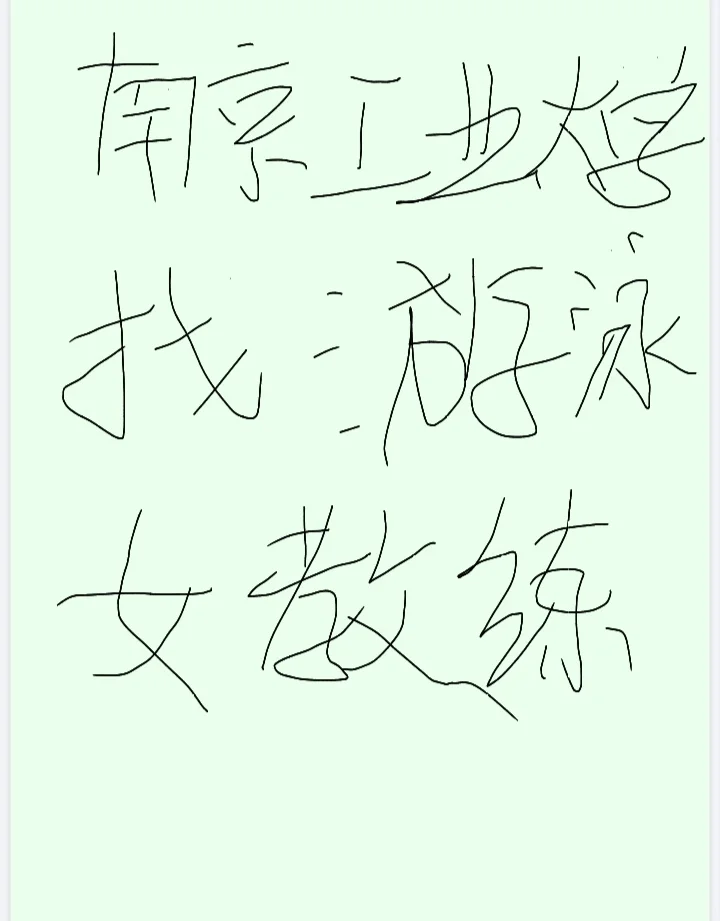 南京工业大学
找游泳
女教练